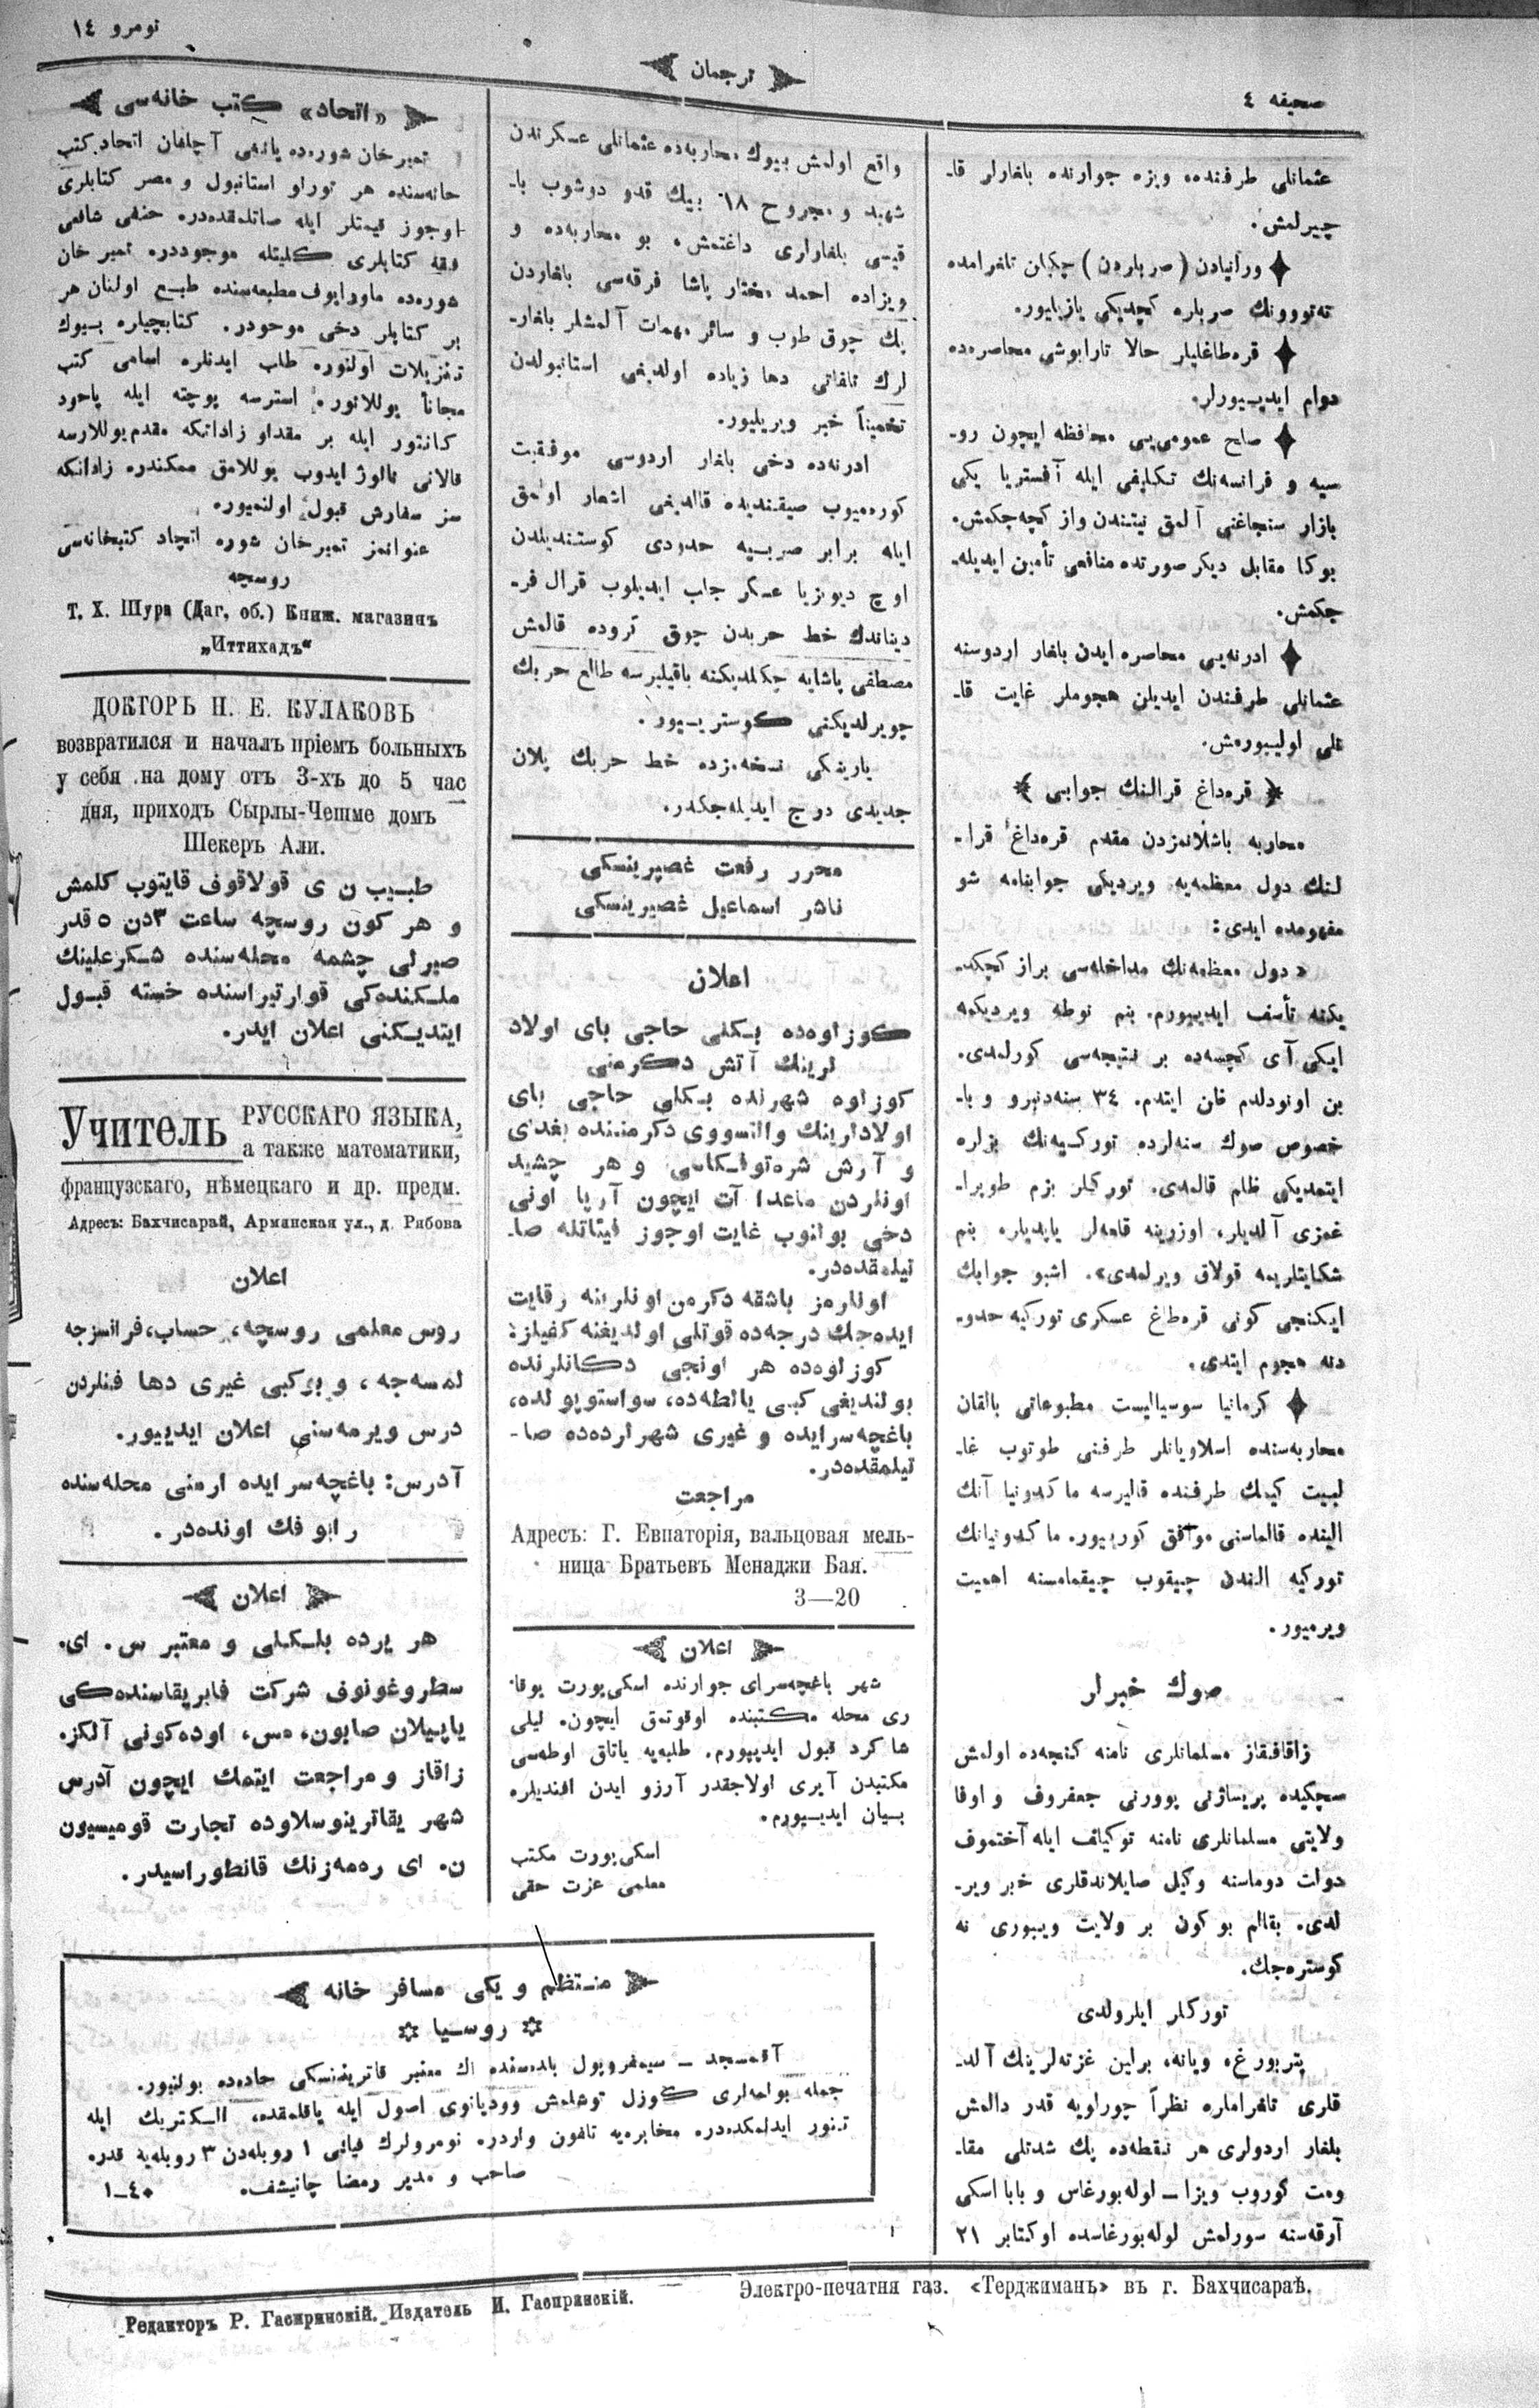 صحیفه ٤
ترجمان
نومرو ١٤
عثمانلی طرفنده، ویزه جوارنده باغارلر قا-
چیرلمش.
ورانیادن (صرباردن) چکیلن تلغرامده
قره‌طاغلیلر حالا تارابوشی محاصره‌ده
دوام ایدییورلر.
صلح عمومی‌یی محافظه ایچون رو-
سیه و فرانسه‌نك تکلیفی ایله آفستریا یکی
بازار سنجاغنی آلمق نیتندن واز کچه‌جکمش.
بوکا مقابل دیکر صورتده منافعی تأمین ایدیله-
جکمش.
ادرنه‌یی محاصره ایدن باغار اردوسنه
عثمانلی طرفندن ایدیلن هجوملر غایت قا-
نلی اولییورمش.
قره‌داغ قرالنك جوابی
محاربه باشلانمزدن مقدم قره‌داغ قرا-
لنك دول معظمه‌یه ویردیکی جوابنامه شو
مفهومده ایدی:
« دول معظمه‌نك مداخله‌سی براز کچکد-
یکنه تأسف ایدییورم. بنم نوطه ویردیکمه
ایکی آی کچسه‌ده بر نتیجه‌سی کورلمدی.
بن اونودلدم ظن ایتدم. ٣٤ سنه‌دنبرو و با-
خصوص صوك سنه‌لرده تورکیه‌نك بزلره
ایتمدیکی ظلم قالمدی. تورکلر بزم طوپرا-
غمزی آلدیلر، اوزرینه قلعه‌لر یاپدیلر. بنم
شکایتلریمه قولاق ویرلمدی». اشبو جوابك
ایکنجی کونی قره‌طاغ عسکری تورکیه حدو-
دنه هجوم ایتدی.
کرمانیا سوسیالیست مطبوعاتی بالقان
محاربه‌سنده اسلاویانلر طرفنی طوتوب غا-
لبیت کیمك طرفنده قالیرسه ماکدونیا آنك
الینده قالماسنی موافق کورییور. ماکدونیانك
تورکیه الندن چیقوب چیقمامسنه اهمیت
ویرمیور.
صوك خبرلر
زاقافقاز مسلمانلری نامنه کنجه‌ده اولمش
سچکیده پریساژنی پوورنی جعفروف و اوفا
ولایتی مسلمانلری نامنه توکیلف ایله آختموف
دولت دوماسنه وکیل صایلاندقلری خبر ویر-
لدی. بقالم بوکون بر ولایت ویبوری نه
کوستره‌جك.
تورکلر ایلرولدی
پتربورغ، ویانه، برلین غزته‌لرینك آلد-
قلری تلغراملره نظراً چورلویه قدر دالمش
بلغار اردولری هر نقطه‌ده پك شدتلی مقا-
ومت کوروب ویزا ـ لوله‌بورغاس و بابا اسکی
آرقه‌سنه سورلمش لوله‌بورغاسده اوکتابر ٢١
واقع اولمش بیوك محاربه‌ده عثمانلی عسکرندن
شهید و مجروح ١٨ بیك قدر دوشوب با-
ویزاده احمد مختار پاشا فرقه‌سی باغاردن
پك چوق طوب و سائر مهمات آلمشلر باغار-
لرك تلفاتی دها زیاده اولدیغی استانبولدن
تخمیناً خبر ویریلیور.
ادرنه‌ده دخی باغار اردوسی موفقیت
کوره‌میوب صیقندیده قالدیغی اشعار اولنمق
ایله برابر صربیه حدودی کوستندیلدن
اوچ دیویزیا عسکر جلب ایدیلوب قرال فر-
دیناندك خط حربدن چوق کروده قالمش
مصطفی پاشایه چکلمدیکنه باقیلیرسه طالع حربك
چویرلدیکنی کوسترییور.
یارینکی نسخه‌مزده خط حربك پلان
جدیدی درج ایدیله‌جکدر.
محرر رفعت غصپرینسکی
ناشر اسماعیل غصپرینسکی
اعلان
کوزلوه‌ده بکلی حاجی بای اولاد
لرینك آتش دکرمنی
کوزلوه شهرنده بکلی حاجی بای
اولادلرینك والسووی دکرمننده بغدای
و هر چشید
اونلردن ماعدا آت ایچون آرپا اونی
دخی بولنوب غایت اوجوز فیئاتله صا-
تیلمقده‌در.
اونلرمز باشقه دکرمن اونلرینه رقابت
ایده‌جك درجه‌ده قوتلی اولدیغنه کفیلز:
کوزلوه‌ده هر اونجی دکانلرنده
بولندیغی کبی یالطه‌ده، سواستوپولده،
باغچه‌سرایده و غیری شهرلرده‌ده صا-
تیلمقده‌در.
مراجعت
Адресъ: Г. Евпаторія, вальцовая мель-
ница Братьевъ Менаджи Бая.
3—20
اعلان
شهر باغچه‌سرای جوارنده اسکی‌یورت یوقا-
ری محله مکتبنده اوقوتمق ایچون. لیلی
شاکرد قبول ایدییورم. طلبه‌یه یاتاق اوطه‌سی
مکتبدن آیری اولاجقدر آرزو ایدن افندیلره
بیان ایدییورم.
اسکی‌یورت مکتب
معلمی عزت حقی
«اتحاد» کتب خانه‌سی
تمیرخان شوره‌ده یاڭی آچلغان اتحاد کتب
خانه‌سنده هر تورلو استانبول و مصر کتابلری
اوجوز قیمتلر ایله صاتلمقده‌در. حنفی شافعی
فقه کتابلری کلیتله موجوددر. تمیر خان
شوره‌ده ماورایوف مطبعه‌سنده طبع اولنان هر
بر کتابلر دخی موجودر. کتابچیلره بیوك
تنزیلات اولنور. طلب ایدنلره اسامی کتب
مجاناً یوللانور. استرسه پوچته ایله یاخود
کانتور ایله بر مقدار زاداتکه مقدم یوللارسه
قالانی نالوژ ایدوب یوللامق ممکندر. زاداتکه
سز سفارش قبول اولنمیور.
عنوانمز تمیرخان شوره اتحاد کتبخانه‌سی
روسچه
Т. Х. Шура (Даг. об.) Книж. магазинъ
„Иттихадъ“
ДОКТОРЪ Н. Е. КУЛАКОВЪ
возвратился и началъ пріемъ больныхъ
у себя на дому отъ 3-хъ до 5 час
дня, приходъ Сырлы-Чешме домъ
Шекеръ Али.
طبیب ن ی قولاقوف قایتوب کلمش
و هر کون روسچه ساعت ٣دن ٥ قدر
صیرلی چشمه محله‌سنده شکرعلینك
ملکنده‌کی قوارتیراسنده خسته قبول
ایتدیکنی اعلان ایدر.
Учитель РУССКАГО ЯЗЫКА,
а также математики,
французскаго, нѣмецкаго и др. предм.
Адресъ: Бахчисарай, Армянская ул., д. Рябова
اعلان
روس معلمی روسچه، حساب، فرانسزجه
نمسه‌جه، و بوکبی غیری دها فنلردن
درس ویرمه‌سنی اعلان ایدییور.
آدرس: باغچه‌سرایده ارمنی محله‌سنده
رابوفك اونده‌در.
اعلان
هر یرده بلکلی و معتبر س. ای.
سطروغونوف شرکت فابریقاسنده‌کی
یاپیلان صابون، مس، اوده‌کونی آلکز.
زاقاز و مراجعت ایتمك ایچون آدرس
شهر یقاترینوسلاوده تجارت قومیسیون
منتظم و یکی مسافر خانه
روسیا
آقمسجد ـ سیمفروپول بلده‌سنده اك معتبر قاترینینسکی جاده‌ده بولنیور.
جمله بولمه‌لری کوزل توشلمش وودیانوی اصول ایله یاقلمقده، الکتریك ایله
تنور ایدلمکده‌در. مخابره‌یه تلفون واردر. نومرولرك فیاتی ١ روبله‌دن ٣ روبله‌یه قدر.
صاحب و مدیر رمضا چانیشف.
١-٤٠
Редакторъ Р. Гаспринскій. Издатель И. Гаспринскій.
Электро-печатня газ. «Терджиманъ» въ г. Бахчисараѣ.